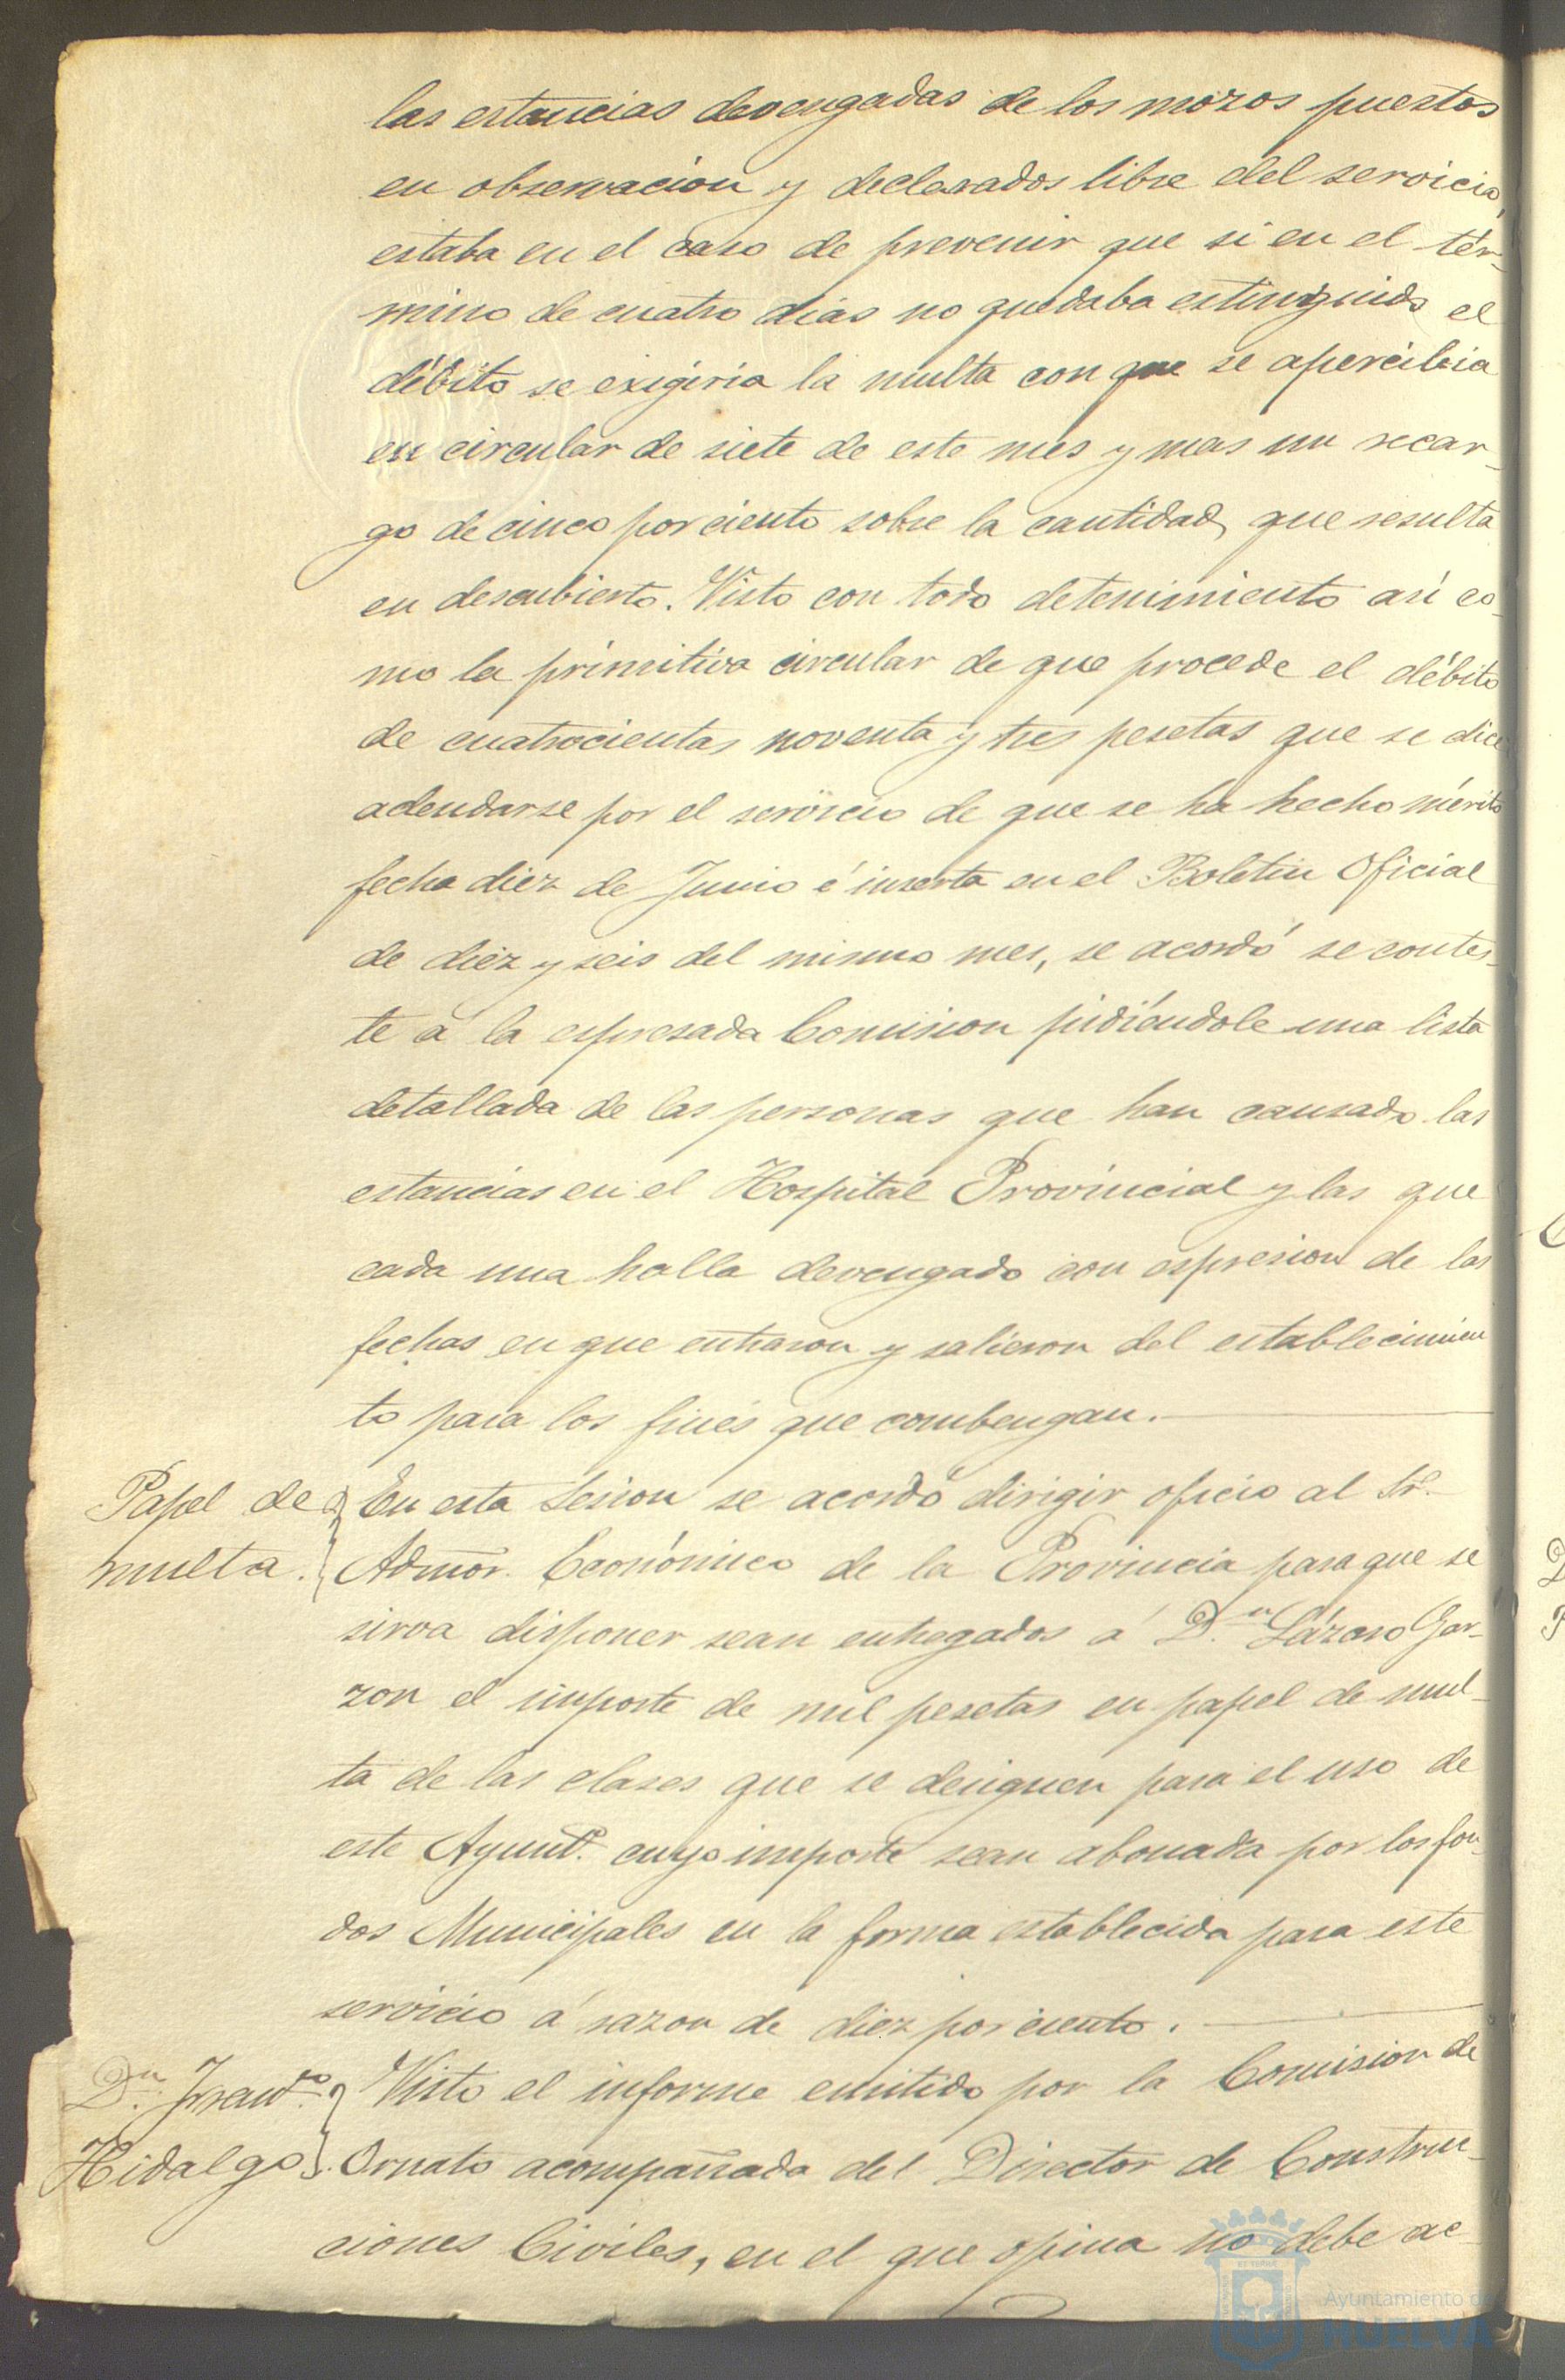 las estancias devengadas de los mozos puestos
en observacion y declarados libre del servicio,
estaba en el caso de prevenir que si en el tér-
mino de cuatro dias no quedaba estinguido el
débito se exigiria la multa con que se apercibia
en circular de siete de este mes y mas un recar-
go de cinco por ciento sobre la cantidad que resulta
en descubierto. Visto con todo detenimiento así co-
mo la primitiva circular de que procede el débito
de cuatrocientas noventa y tres pesetas que se dice
adeudarse por el servicio de que se ha hecho mérito
fecha diez de Junio é inserta en el Boletin Oficial
de diez y seis del mismo mes, se acordó se contes-
te á la espresada Comision pidiéndole una lista
detallada de las personas que han causado las
estancias en el Hospital Provincial y las que
cada una halla devengado con espresion de las
fechas en que entraron y salieron del establecimien
to para los fines que combengan.
Papel de
multa.
En esta Sesion se acordó dirigir oficio al Sr.
Admor. Económico de la Provincia para que se
sirva disponer sean entregados á D.n Lázaro Gar-
zon el importe de mil pesetas en papel de mul-
ta de las clases que se designen para el uso de
este Ayunt.o cuyo importe sean abonada por los fon-
dos Municipales en la forma establecida para este
servicio á razon de diez por ciento.
D.n Fran.co
Hidalgo.
Visto el informe emitido por la Comision de
Ornato acompañada del Director de Construc-
ciones Civiles, en el que opina no debe ac-
Ayuntamiento de
HUELVA